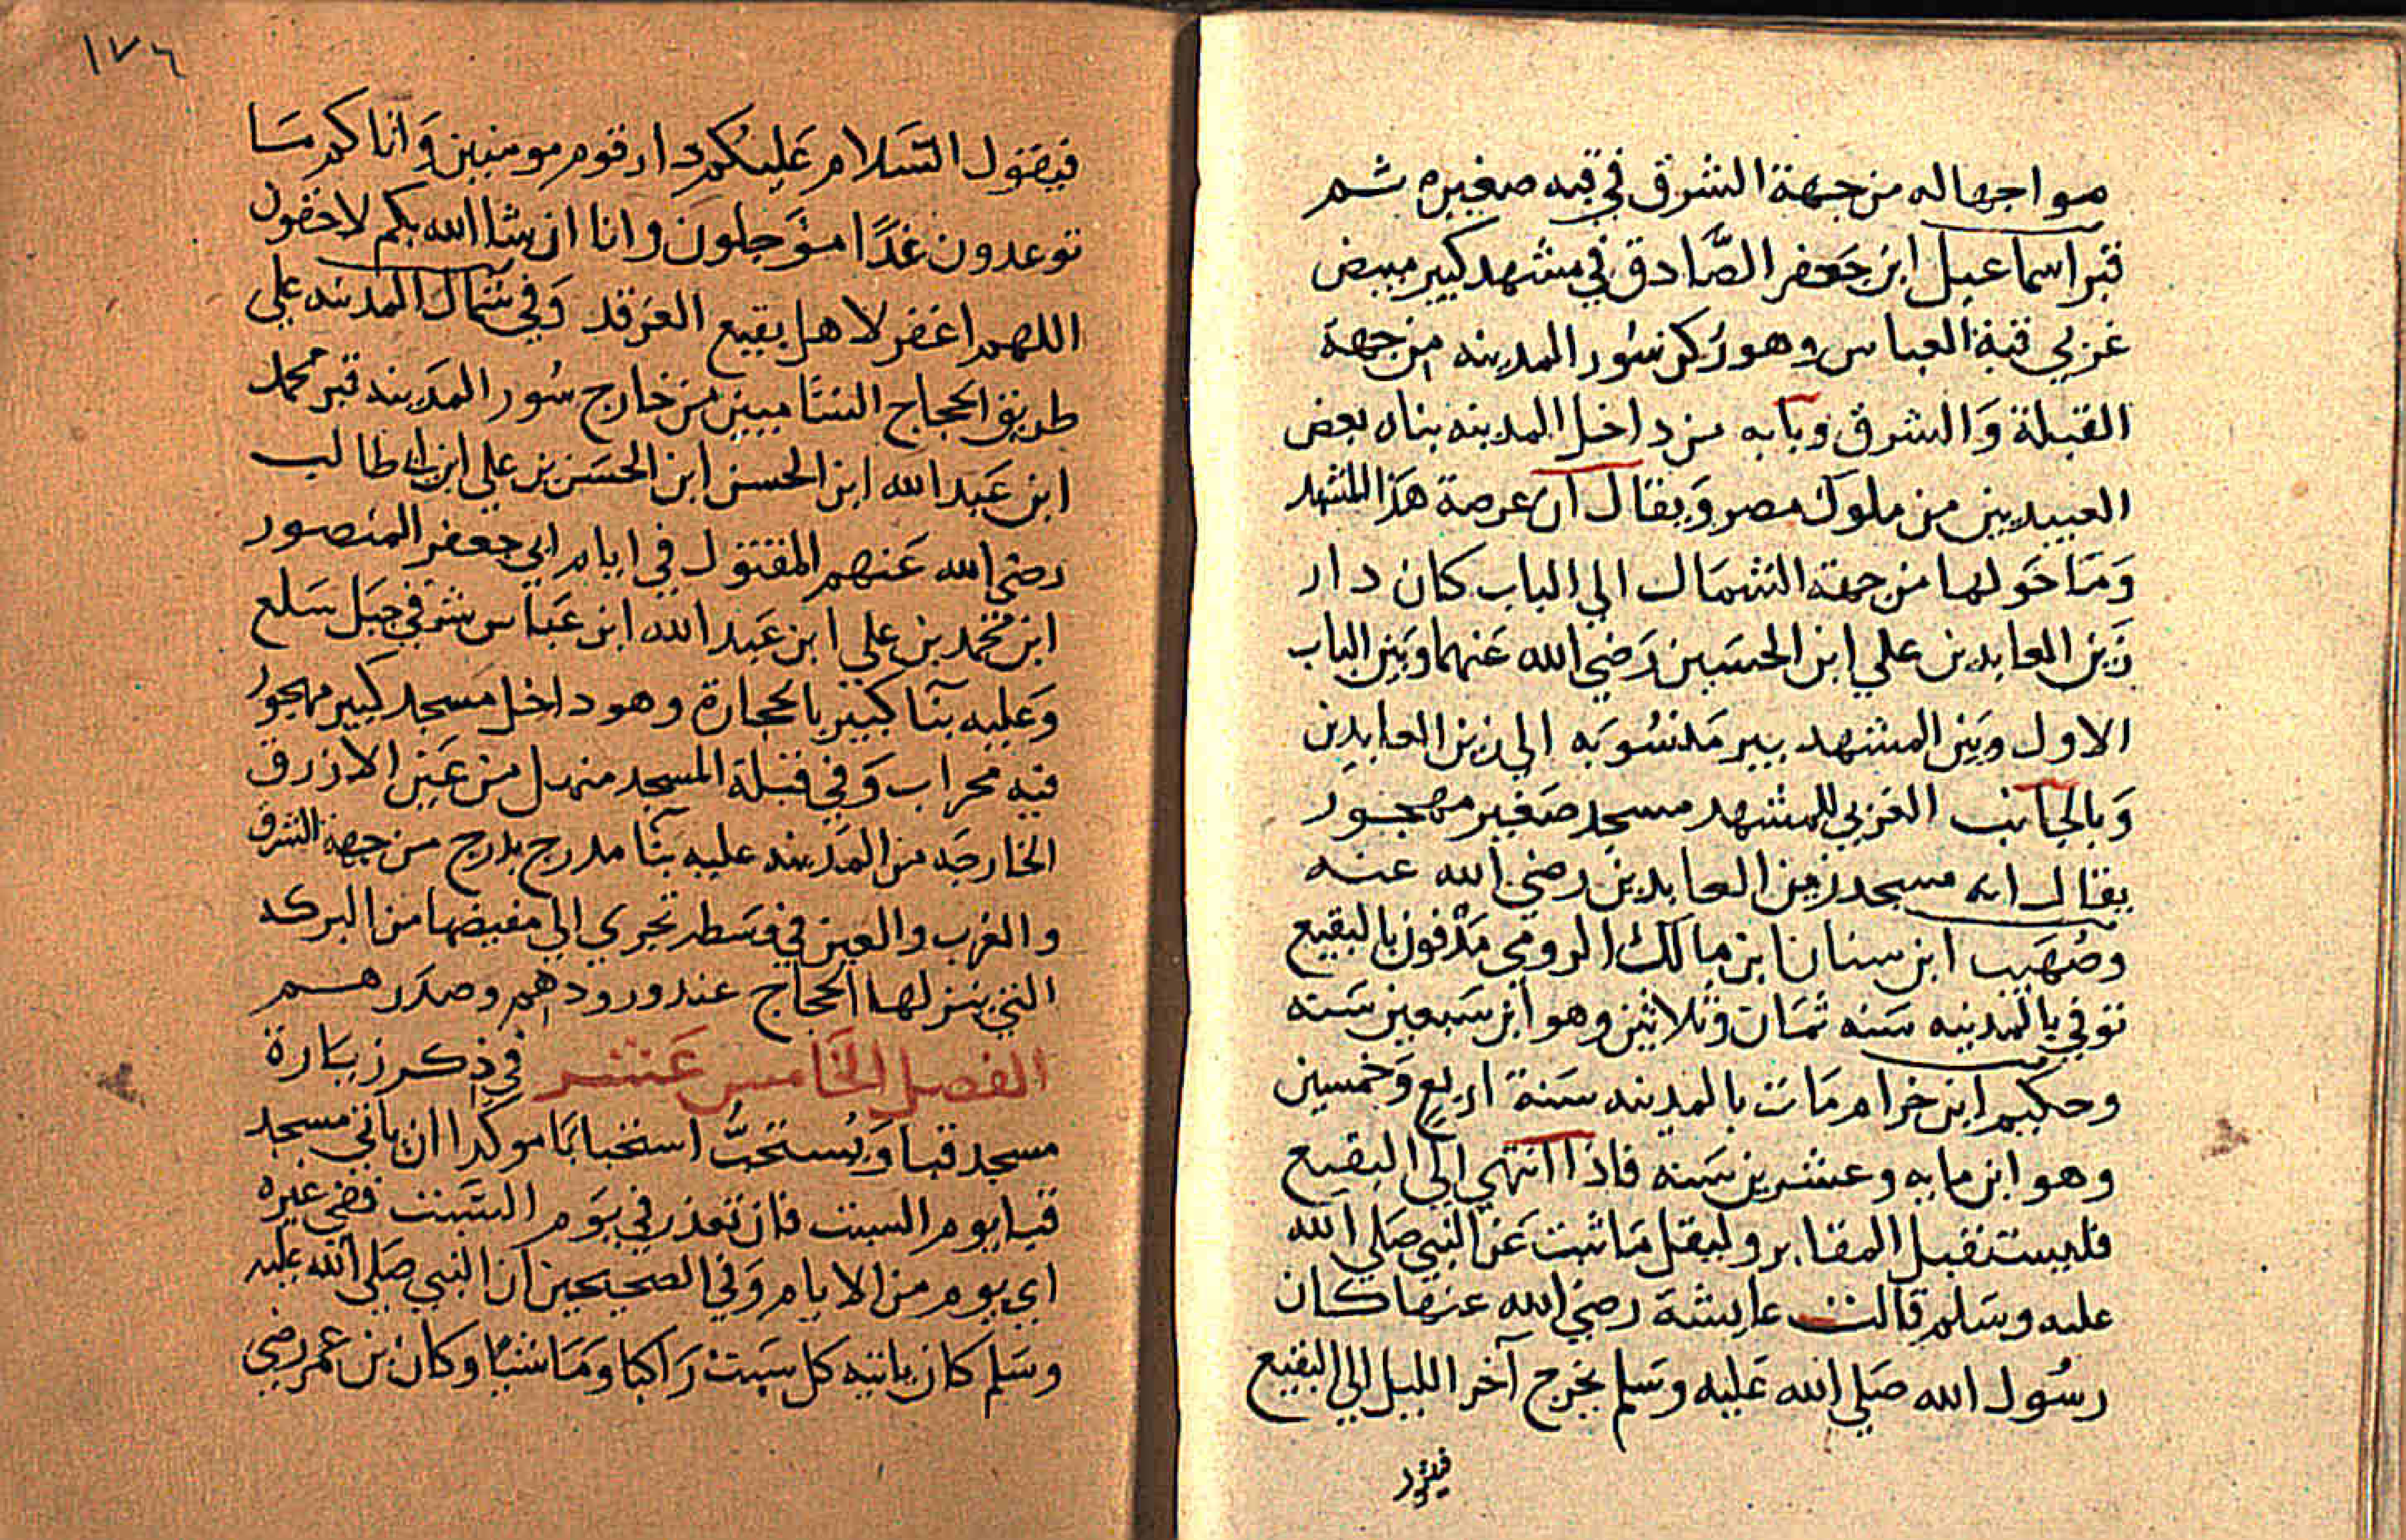 مواجهاله من جهة الشرق في قبه صغيره ثم
قبر اسماعيل ابن جعفر الصَّادق في مشهد كبير مبيض
غربي قبة العباس وهو ركن سُور المدينه من جهة
القبلة وَالشرق وبابه من داخل المدينه بناه بعض
العبيديين من ملوك مصر وَيقال ان عرصة هذا المشهد
وَمَا حَولها من جهة الشمال الي الباب كان دار
زَين العابدين علي ابن الحسَين رَضي الله عَنهما وبَين الباب
الاول وبَين المشهد بير مَنسُوبَه الي زين العابدين
وَبالجَانب الغربي للمشهد مسجد صَغير مهجور
يقال انه مسجد زين العابدين رضي الله عنه
وصُهَيب ابن سنان ابن مالك الرومي مَدْفون بالبقيع
توفي بالمدينه سَنه ثمَان وَثلاثين وهو ابن سَبعين سَنه
وحكيم ابن حزام مَات بالمدينه سَنة اربعٍ وَخمسين
وهو ابن مايه وعشرين سَنه فاذا انتهي الي البقيع
فليستقبل المقابر وليقل مَا ثبت عَن النبي صَلي الله
عليه وسَلم قالت عايشَة رضي الله عنها كان
رسُول الله صَلي الله عَليه وسَلم يخرج آخر الليل الي البقيع
فيقول
١٧٦
فيقول السَلام عَليكم دار قوم مومنين وَاتاكم مَا
توعدون غَدًا مؤَجلونَ وانا ان شا الله بكم لاحقون
اللهم اغفر لاهل بقيع الغرقد وَفي شمال المدينه علي
طريق الحجاج الشاميين من خارج سُور المدَينه قبر محمد
ابن عَبد الله ابن الحسن ابن الحسَن بن علي ابن ابي طالب
رضي الله عَنهم المقتول في ايام ابي جعفر المنصور
ابن محمد بن علي ابن عَبد الله ابن عَباس شرقي جَبل سَلع
وَعليه بنآ كبير بالحجارة وهو داخل مَسجد كبير مهجور
فيه محراب وَفي قبلة المسجد منهل من عَين الازرق
الخارجَه من المدَينه عليه بنآ مدرج بدرج من جهة الشرق
والغرب والعين في وسَطه تجري الي مفيضها من البركه
التي ينزلها الحجاج عند ورودهم وصدَرهم
الفصل الخَامس عَشر في ذكر زيَارة
مسجد قبا وَيُستحَبُّ استحبابًا موكدًا ان ياتي مسجد
قبا يوم السبت فان تعذر في يَوم السَبت ففي غيره
اي يوم من الايام وَفي الصحيحين ان النبي صَلي الله عليه
وسَلم كان ياتيه كل سَبتْ رَاكبا ومَاشيًا وكان بن عمر رضي